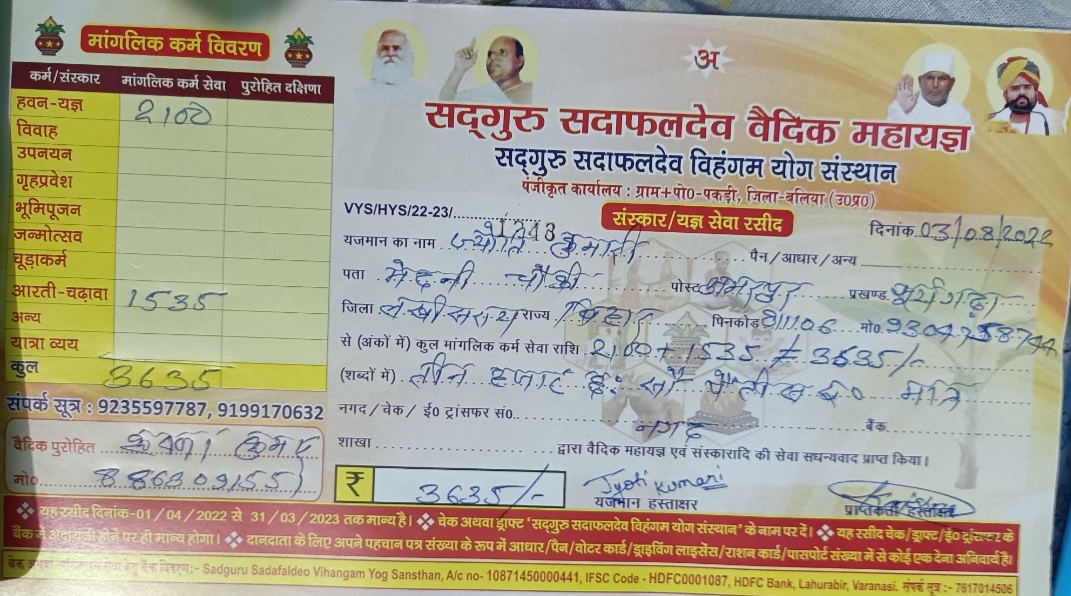 मांगलिक कर्म विवरण
कर्म/संस्कार मांगलिक कर्म सेवा पुरोहित दक्षिणा
हवन-यज्ञ 2100
विवाह
उपनयन
गृहप्रवेश
भूमिपूजन
जन्मोत्सव
चूड़ाकर्म
आरती-चढ़ावा 1535
अन्य
यात्रा व्यय
कुल 3635
संपर्क सूत्र : 9235597787, 9199170632
वैदिक पुरोहित कुमार
मो०
अ
सद्गुरु सदाफलदेव वैदिक महायज्ञ
सद्गुरु सदाफलदेव विहंगम योग संस्थान
पंजीकृत कार्यालय : ग्राम+पो0-पकड़ी, जिला-बलिया (उ0प्र0)
VYS/HYS/22-23/ संस्कार/यज्ञ सेवा रसीद दिनांक 03/08/2022
यजमान का नाम ज्योति कुमारी पैन/आधार/अन्य
पता मेदनी चौकी पोस्ट प्रखण्ड सूर्यगढ़ा
जिला लखीसराय राज्य बिहार पिनकोड 811106 मो०
से (अंकों में) कुल मांगलिक कर्म सेवा राशि 2100+1535 = 3635/-
(शब्दों में) तीन हजार छः सौ पैंतीस रु०
नगद/चेक/ई0 ट्रांसफर सं०. नगद बैंक
शाखा द्वारा वैदिक महायज्ञ एवं संस्कारादि की सेवा सधन्यवाद प्राप्त किया।
₹ 3635/- Jyoti Kumari
यजमान हस्ताक्षर प्राप्तिकर्ता हस्ताक्षर
❖ यह रसीद दिनांक-01/04/2022 से 31/03/2023 तक मान्य है। ❖ चेक अथवा ड्राफ्ट 'सद्गुरु सदाफलदेव विहंगम योग संस्थान' के नाम पर दें। ❖ यह रसीद चेक/ड्राफ्ट/ई0 ट्रांसफर के
बैंक में अदायगी होने पर ही मान्य होगा। ❖ दानदाता के लिए अपने पहचान पत्र संख्या के रूप में आधार/पैन/वोटर कार्ड/ड्राइविंग लाइसेंस/राशन कार्ड/पासपोर्ट संख्या में से कोई एक देना अनिवार्य है।
बैंक विवरण:- Sadguru Sadafaldeo Vihangam Yog Sansthan, A/c no- 10871450000441, IFSC Code - HDFC0001087, HDFC Bank, Lahurabir, Varanasi. संपर्क सूत्र :- 7617014506